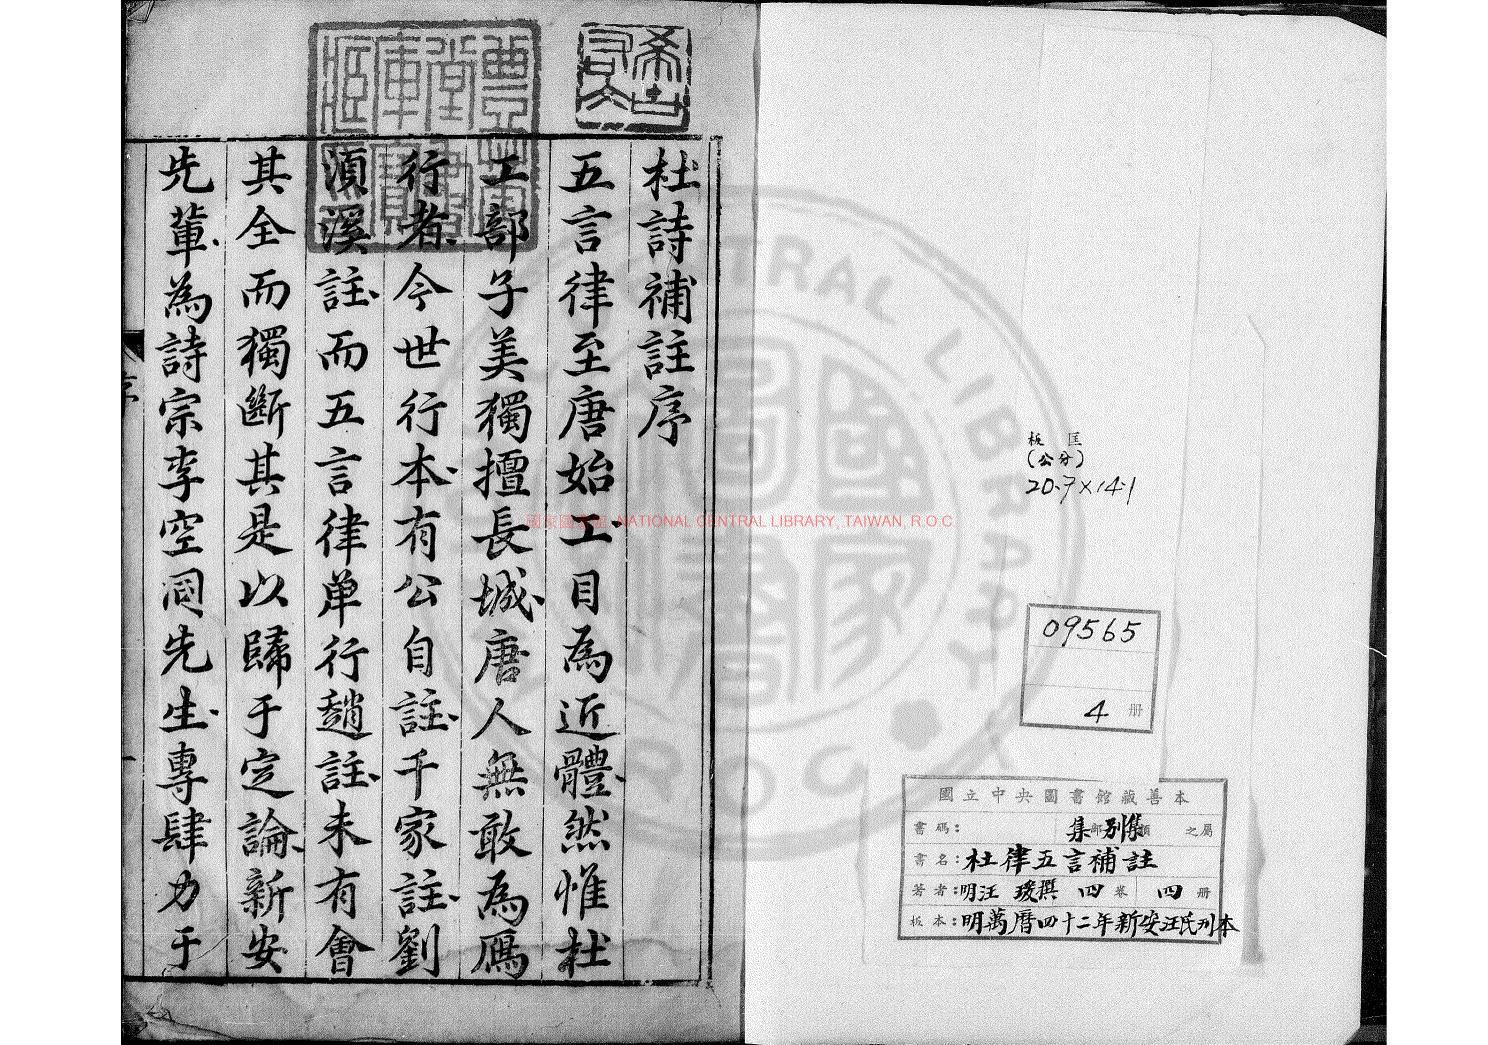 杜詩補註序
五言律至唐始工目為近體然惟杜
工部子美獨擅長城唐人無敢為鴈
行者今世行本有公自註千家註劉
須溪註而五言律单行趙註未有會
其全而獨斷其是以歸于定論新安
先輩為詩宗李空同先生專肆力于
板匡
(公分)
20.7×14.1
09565
4 册
國立中央圖書館藏善本
書碼： 集部別集類之屬
書名：杜律五言補註
著者：明汪瑗撰 四卷 四册
板本：明萬曆四十二年新安汪氏刊本
國家圖書館, NATIONAL CENTRAL LIBRARY, TAIWAN, R.O.C.